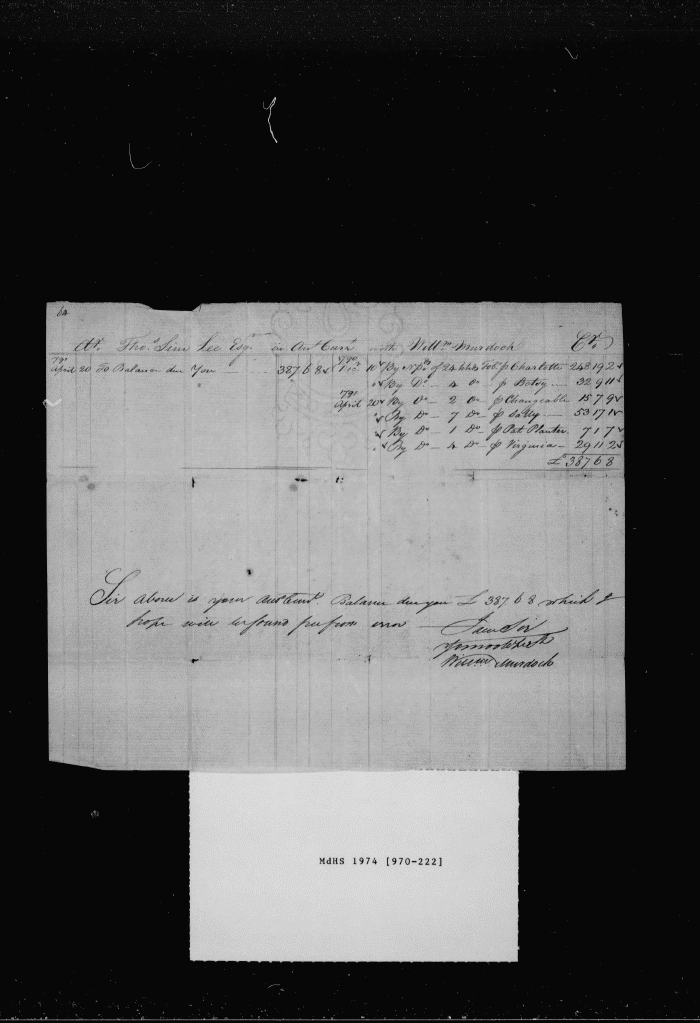 Dr. Thos. Sim Lee Esqr. in Acct Currt with Willm Murdoch Cr.
1791
April 20 To Balance due You 387 6 8
1790
10 By Nt Pds of 24 hhds Tobo p Charlotte 248 19 2
By Do 4 Do p Betsy 32 9 11
1791
April 20 By Do 2 Do p Changeable 15 7 9
By Do 7 Do p Sally 53 17 1
By Do 1 Do p Pat. Planter 7 1 7
By Do 4 Do p Virginia 29 11 2
£ 387 6 8
Sir Above is your Acct Currt. Balance due you £ 387 6 8 which I
hope will be found free from error
I am Sir
Your most Hble St
William Murdoch
MdHS 1974 [970-222]